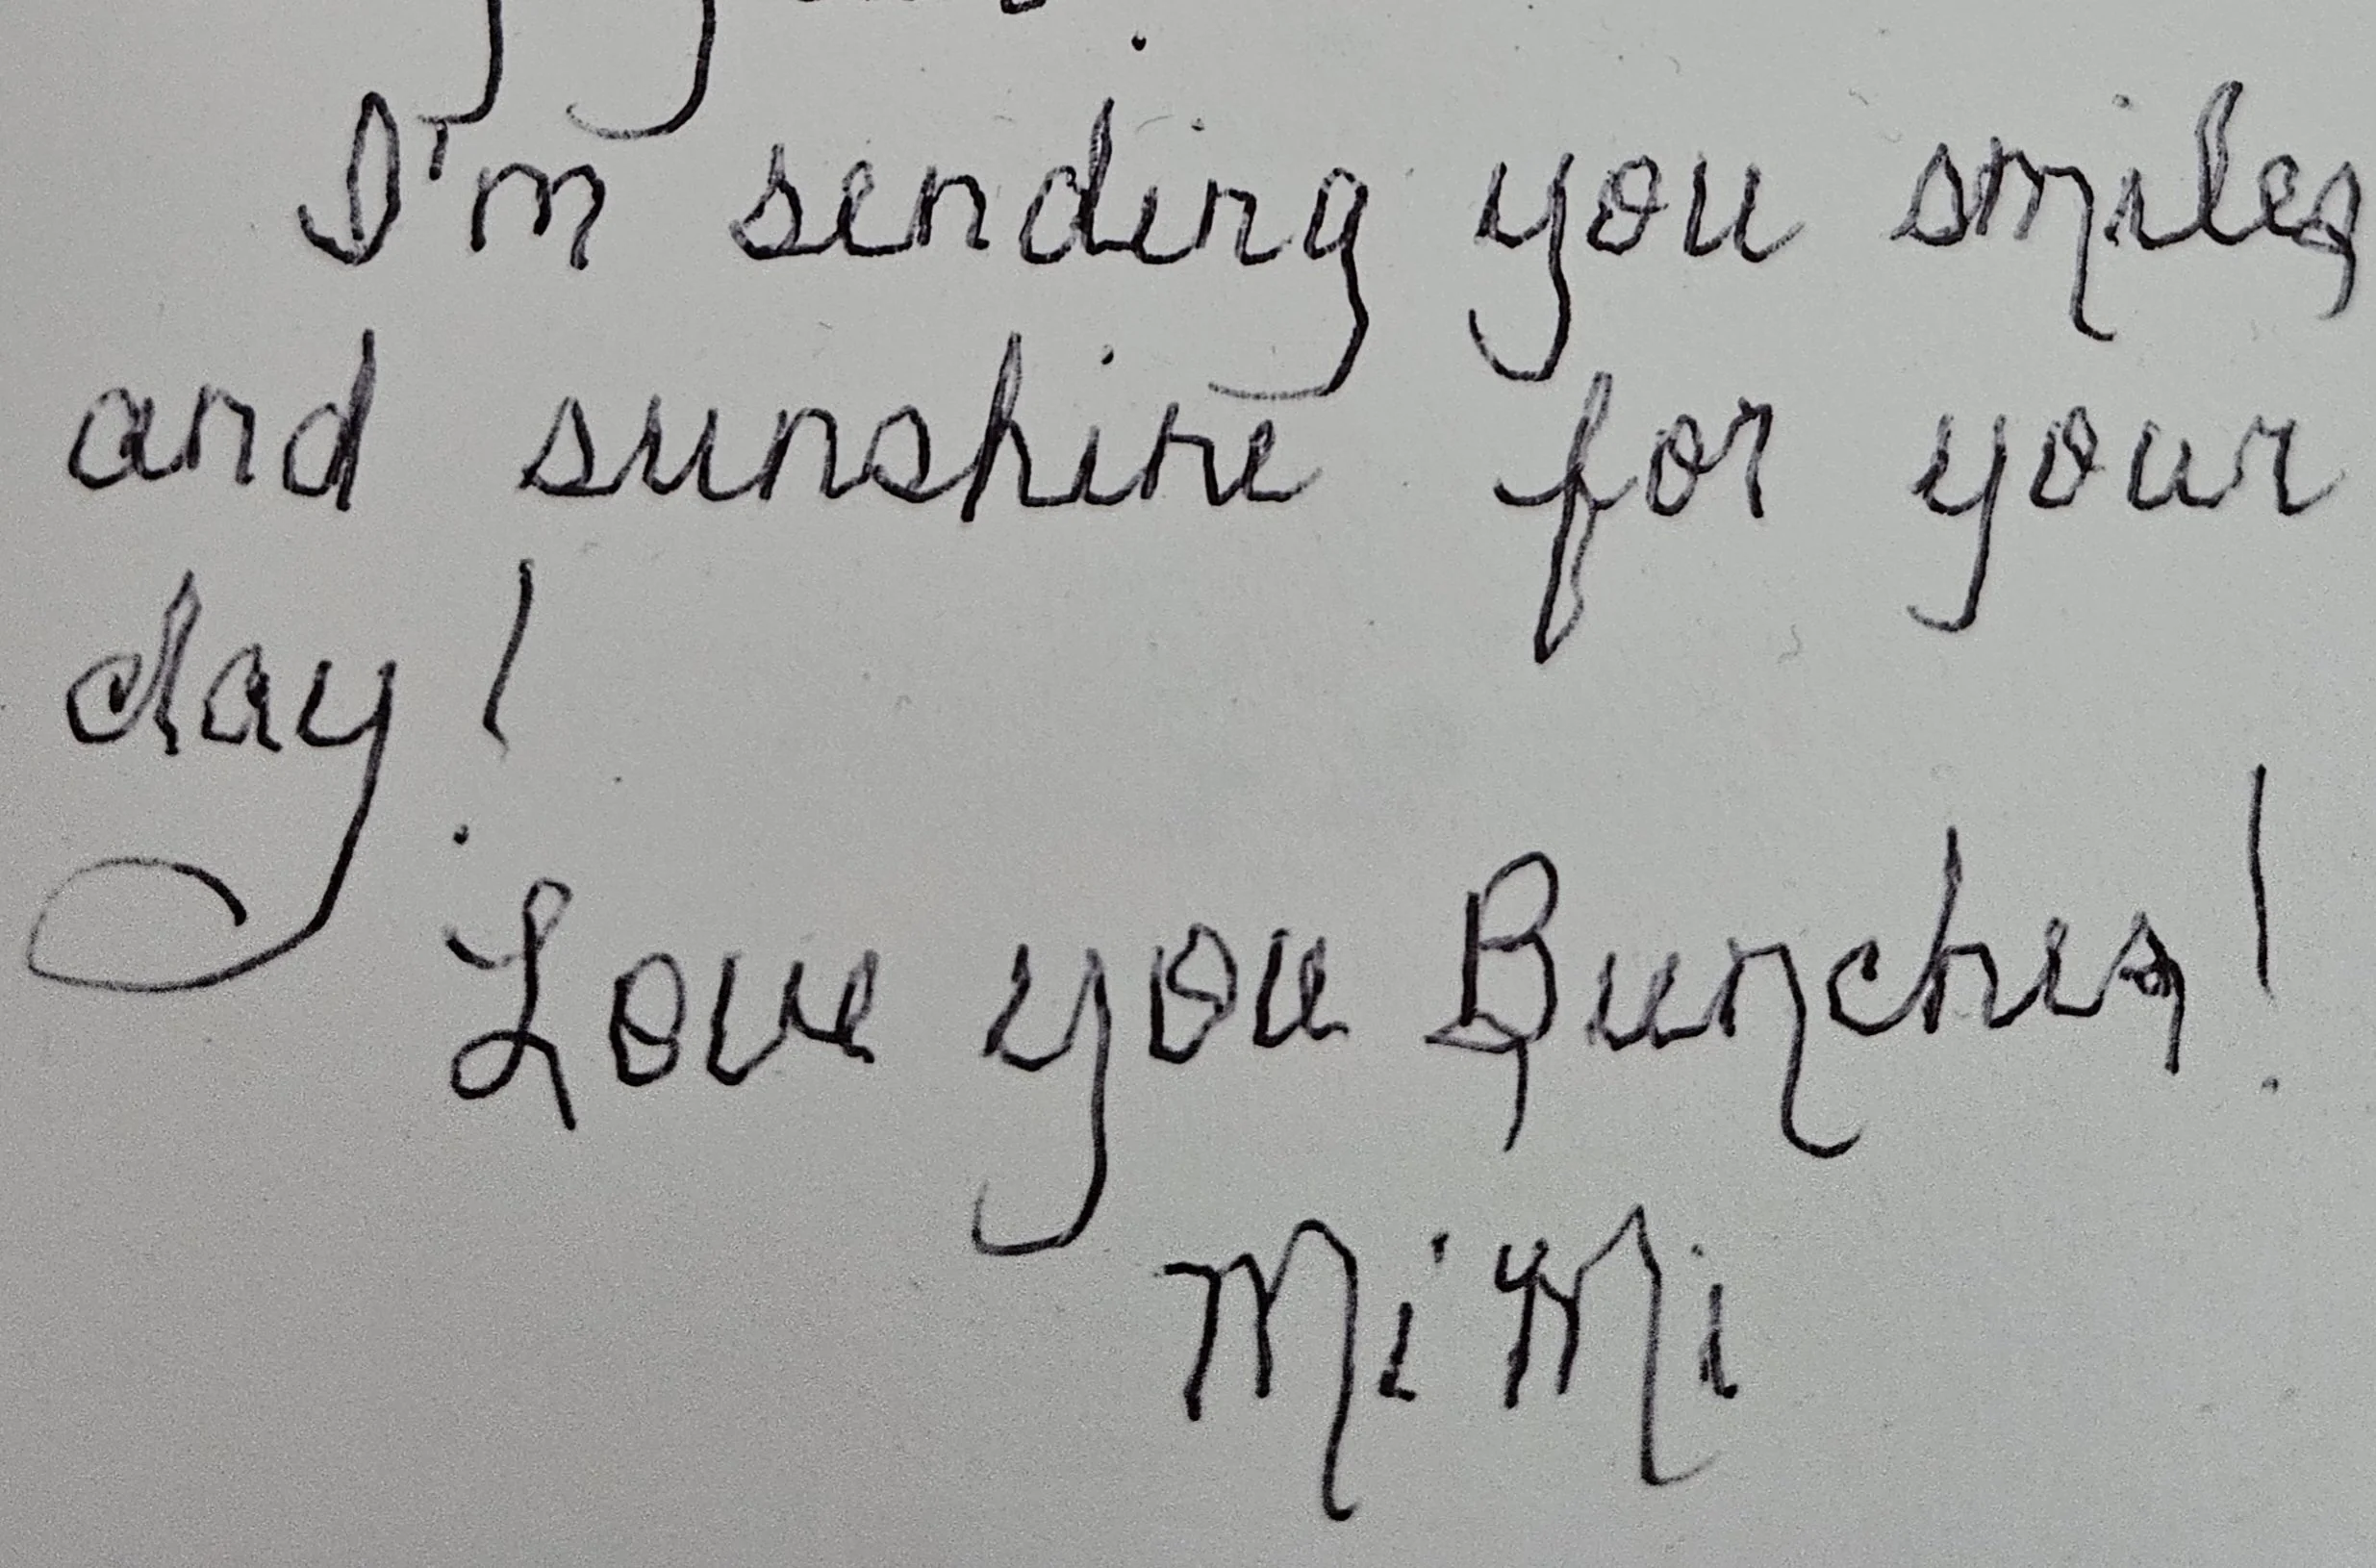 I'm sending you smiles
and sunshine for your
day!
Love you Bunches!
MiMi